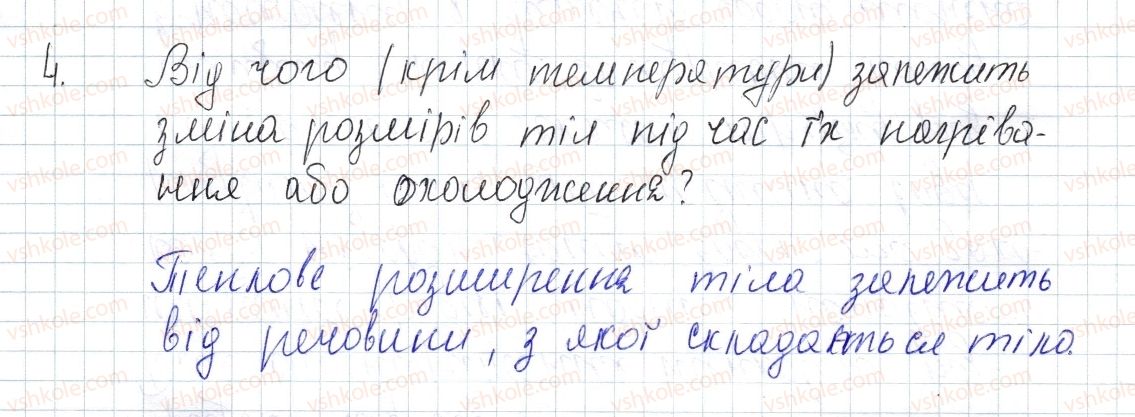 4. Від чого (крім температури) залежить
зміна розмірів тіл під час їх нагріва-
ння або охолодження?
Теплове розширення тіла залежить
від речовини, з якої складається тіло.